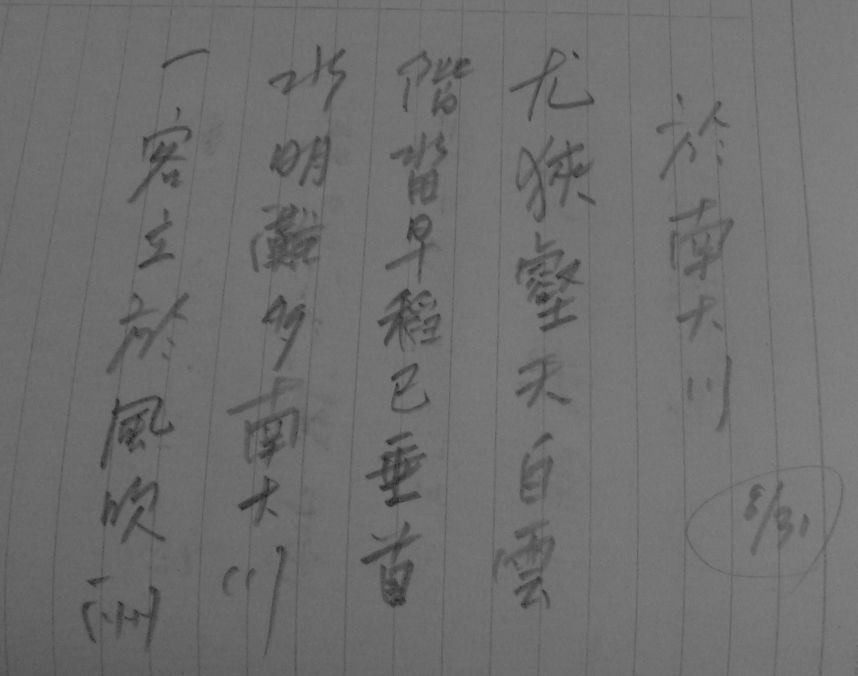 於南大川
8/31
尤狹壑天白雲
階畓早稻已垂首
水明灘多南大川
一客立於風吹洲